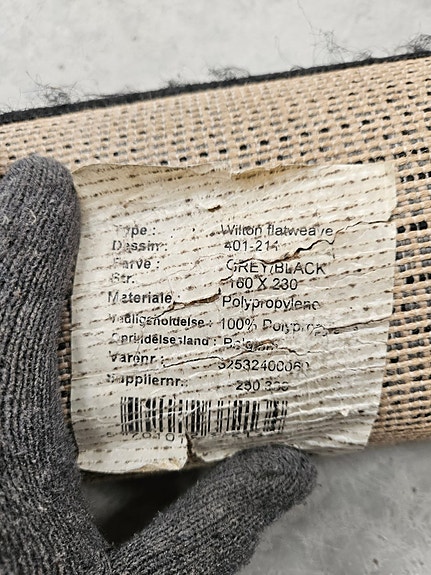 Type : Wilton flatweave
Dessinr: 401-214
Farve : GREY/BLACK
Str.: 160 X 230
Materiale : Polypropylene
Vedligeholdelse : 100%
Oprindelsesland :
Varenr.:
Suppliernr.: